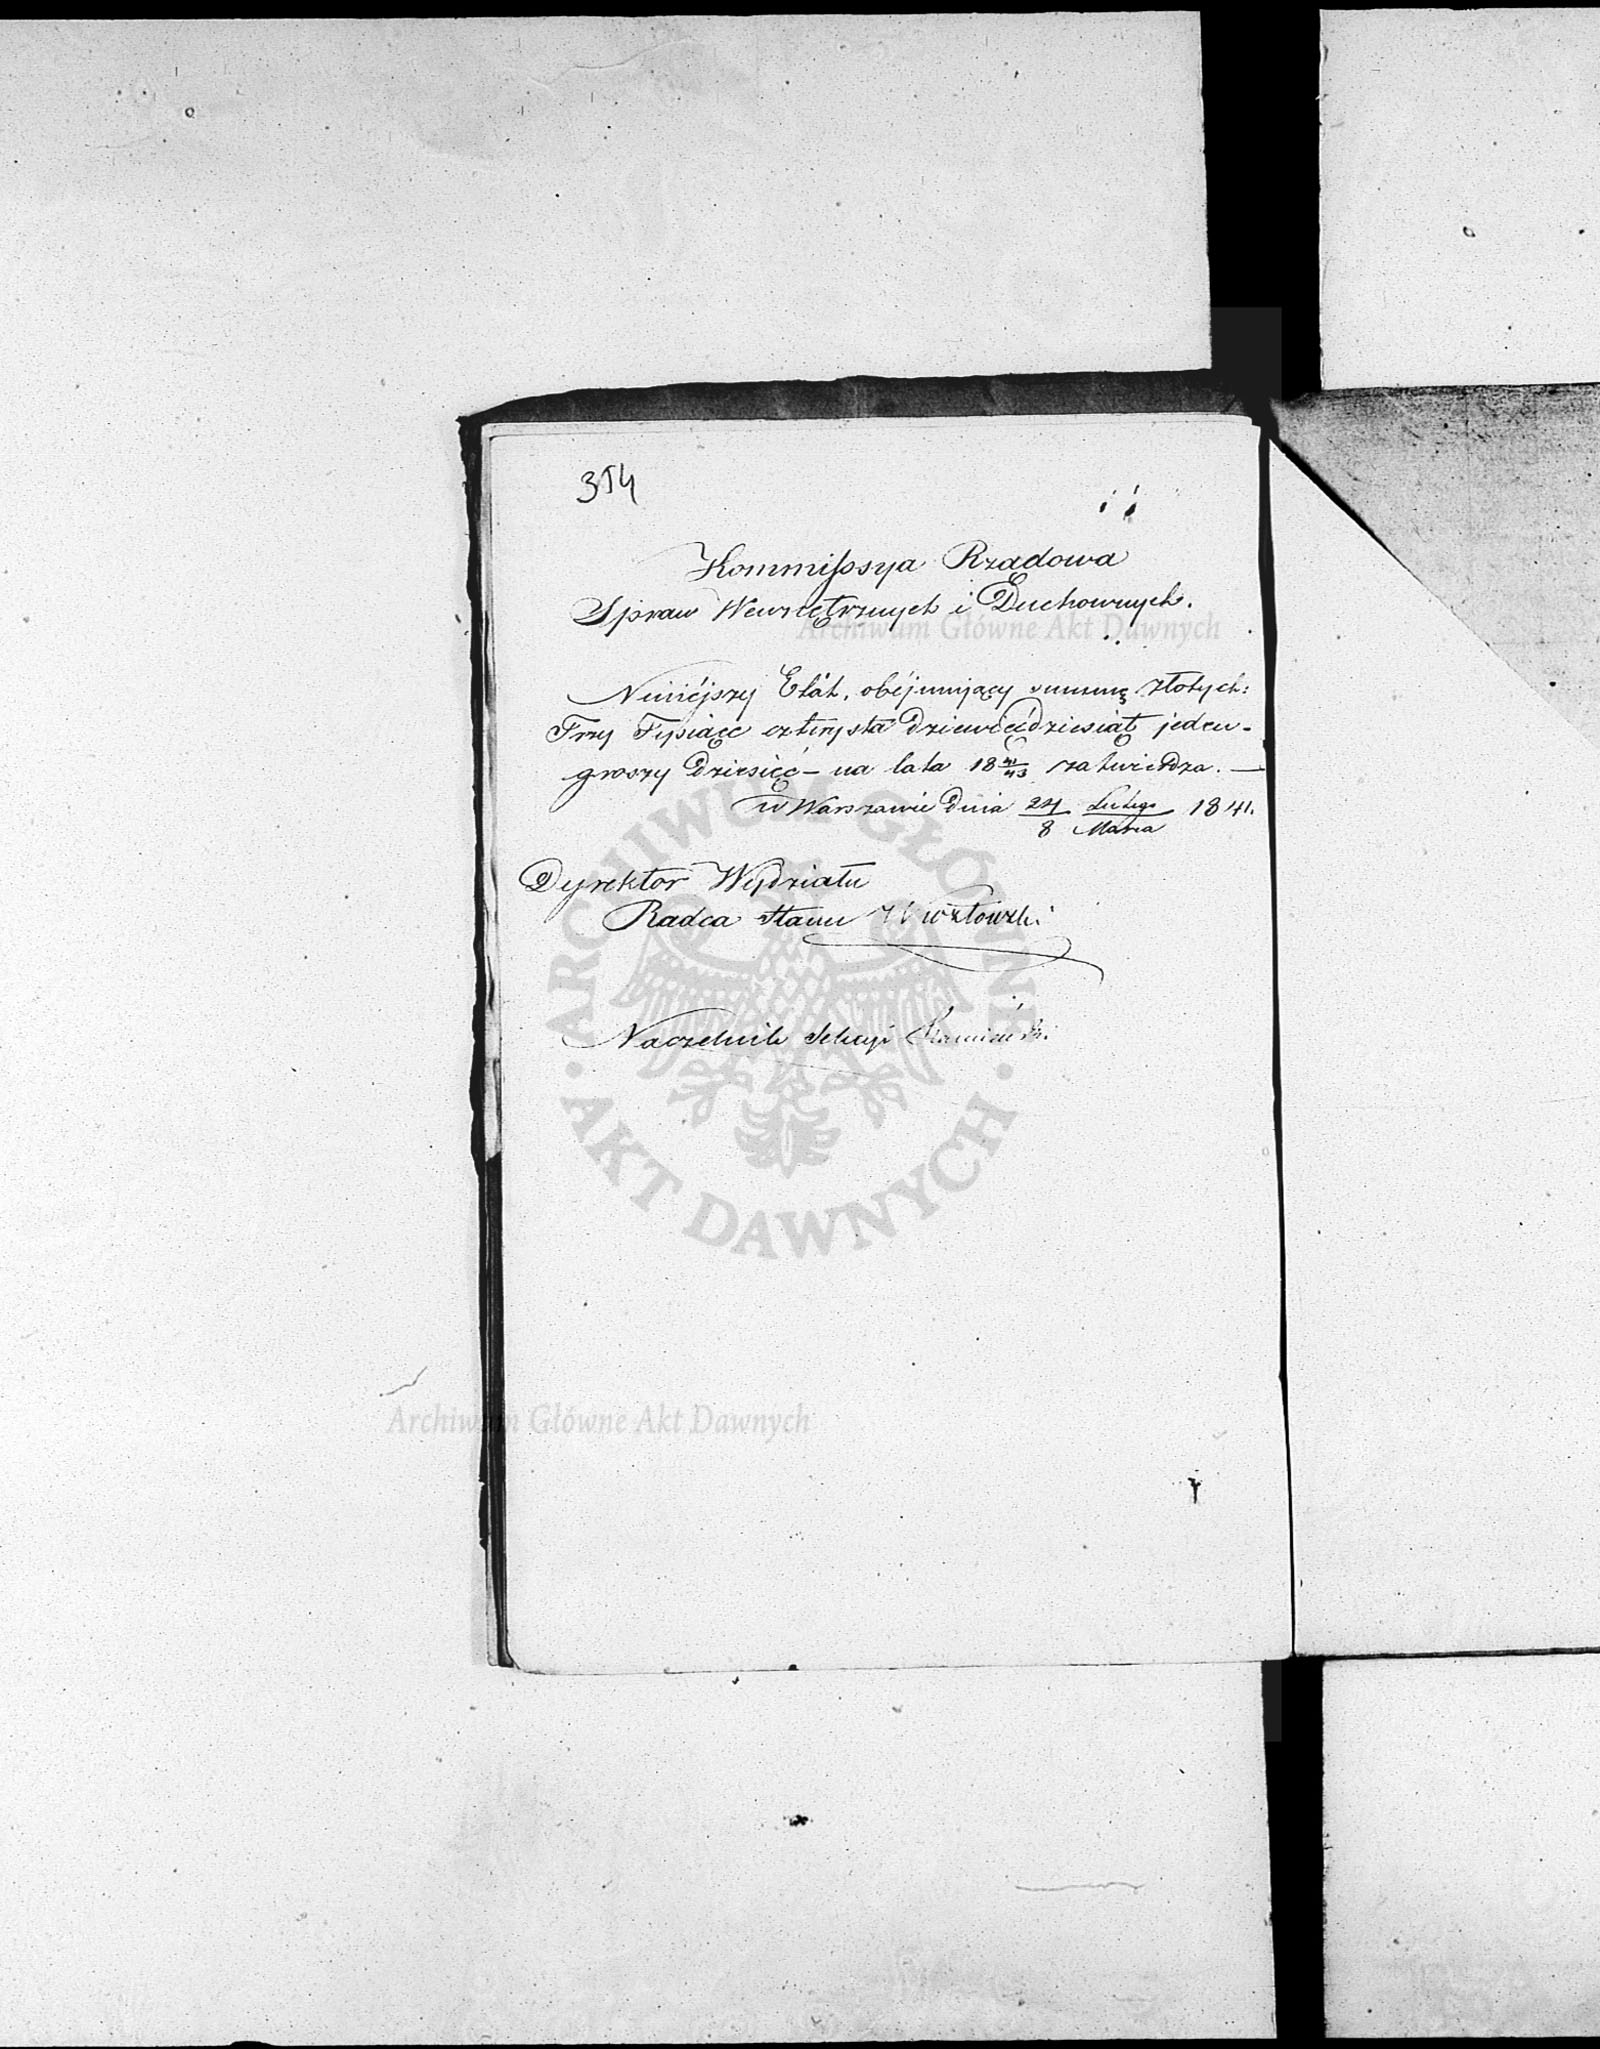 354
Kommissya Rządowa
Spraw Wewnętrznych i Duchownych.
Archiwum Główne Akt Dawnych
Niniéjszy Etát, obéjmujący summę złotych:
Trzy Tysiące czterysta dziewięćdziesiąt jeden -
groszy dziesięć - na lata 18 41/43 zatwierdza. —
w Warszawie dnia 24/8 Lutego/Marca 1841.
Dyrektor Wydziału
Radca Stanu
Naczelnik Sekcyi
ARCHIWUM GŁÓWNE
· AKT DAWNYCH ·
Archiwum Główne Akt Dawnych